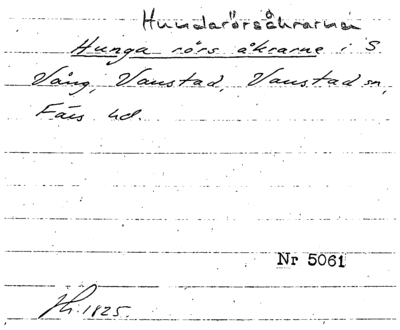 Hundarörsåkrarna
Hunga rörs åkrarne i S.
Vång, Vanstad, Vanstad sn,
Färs hd.
Nr 5061
Jh. 1825.